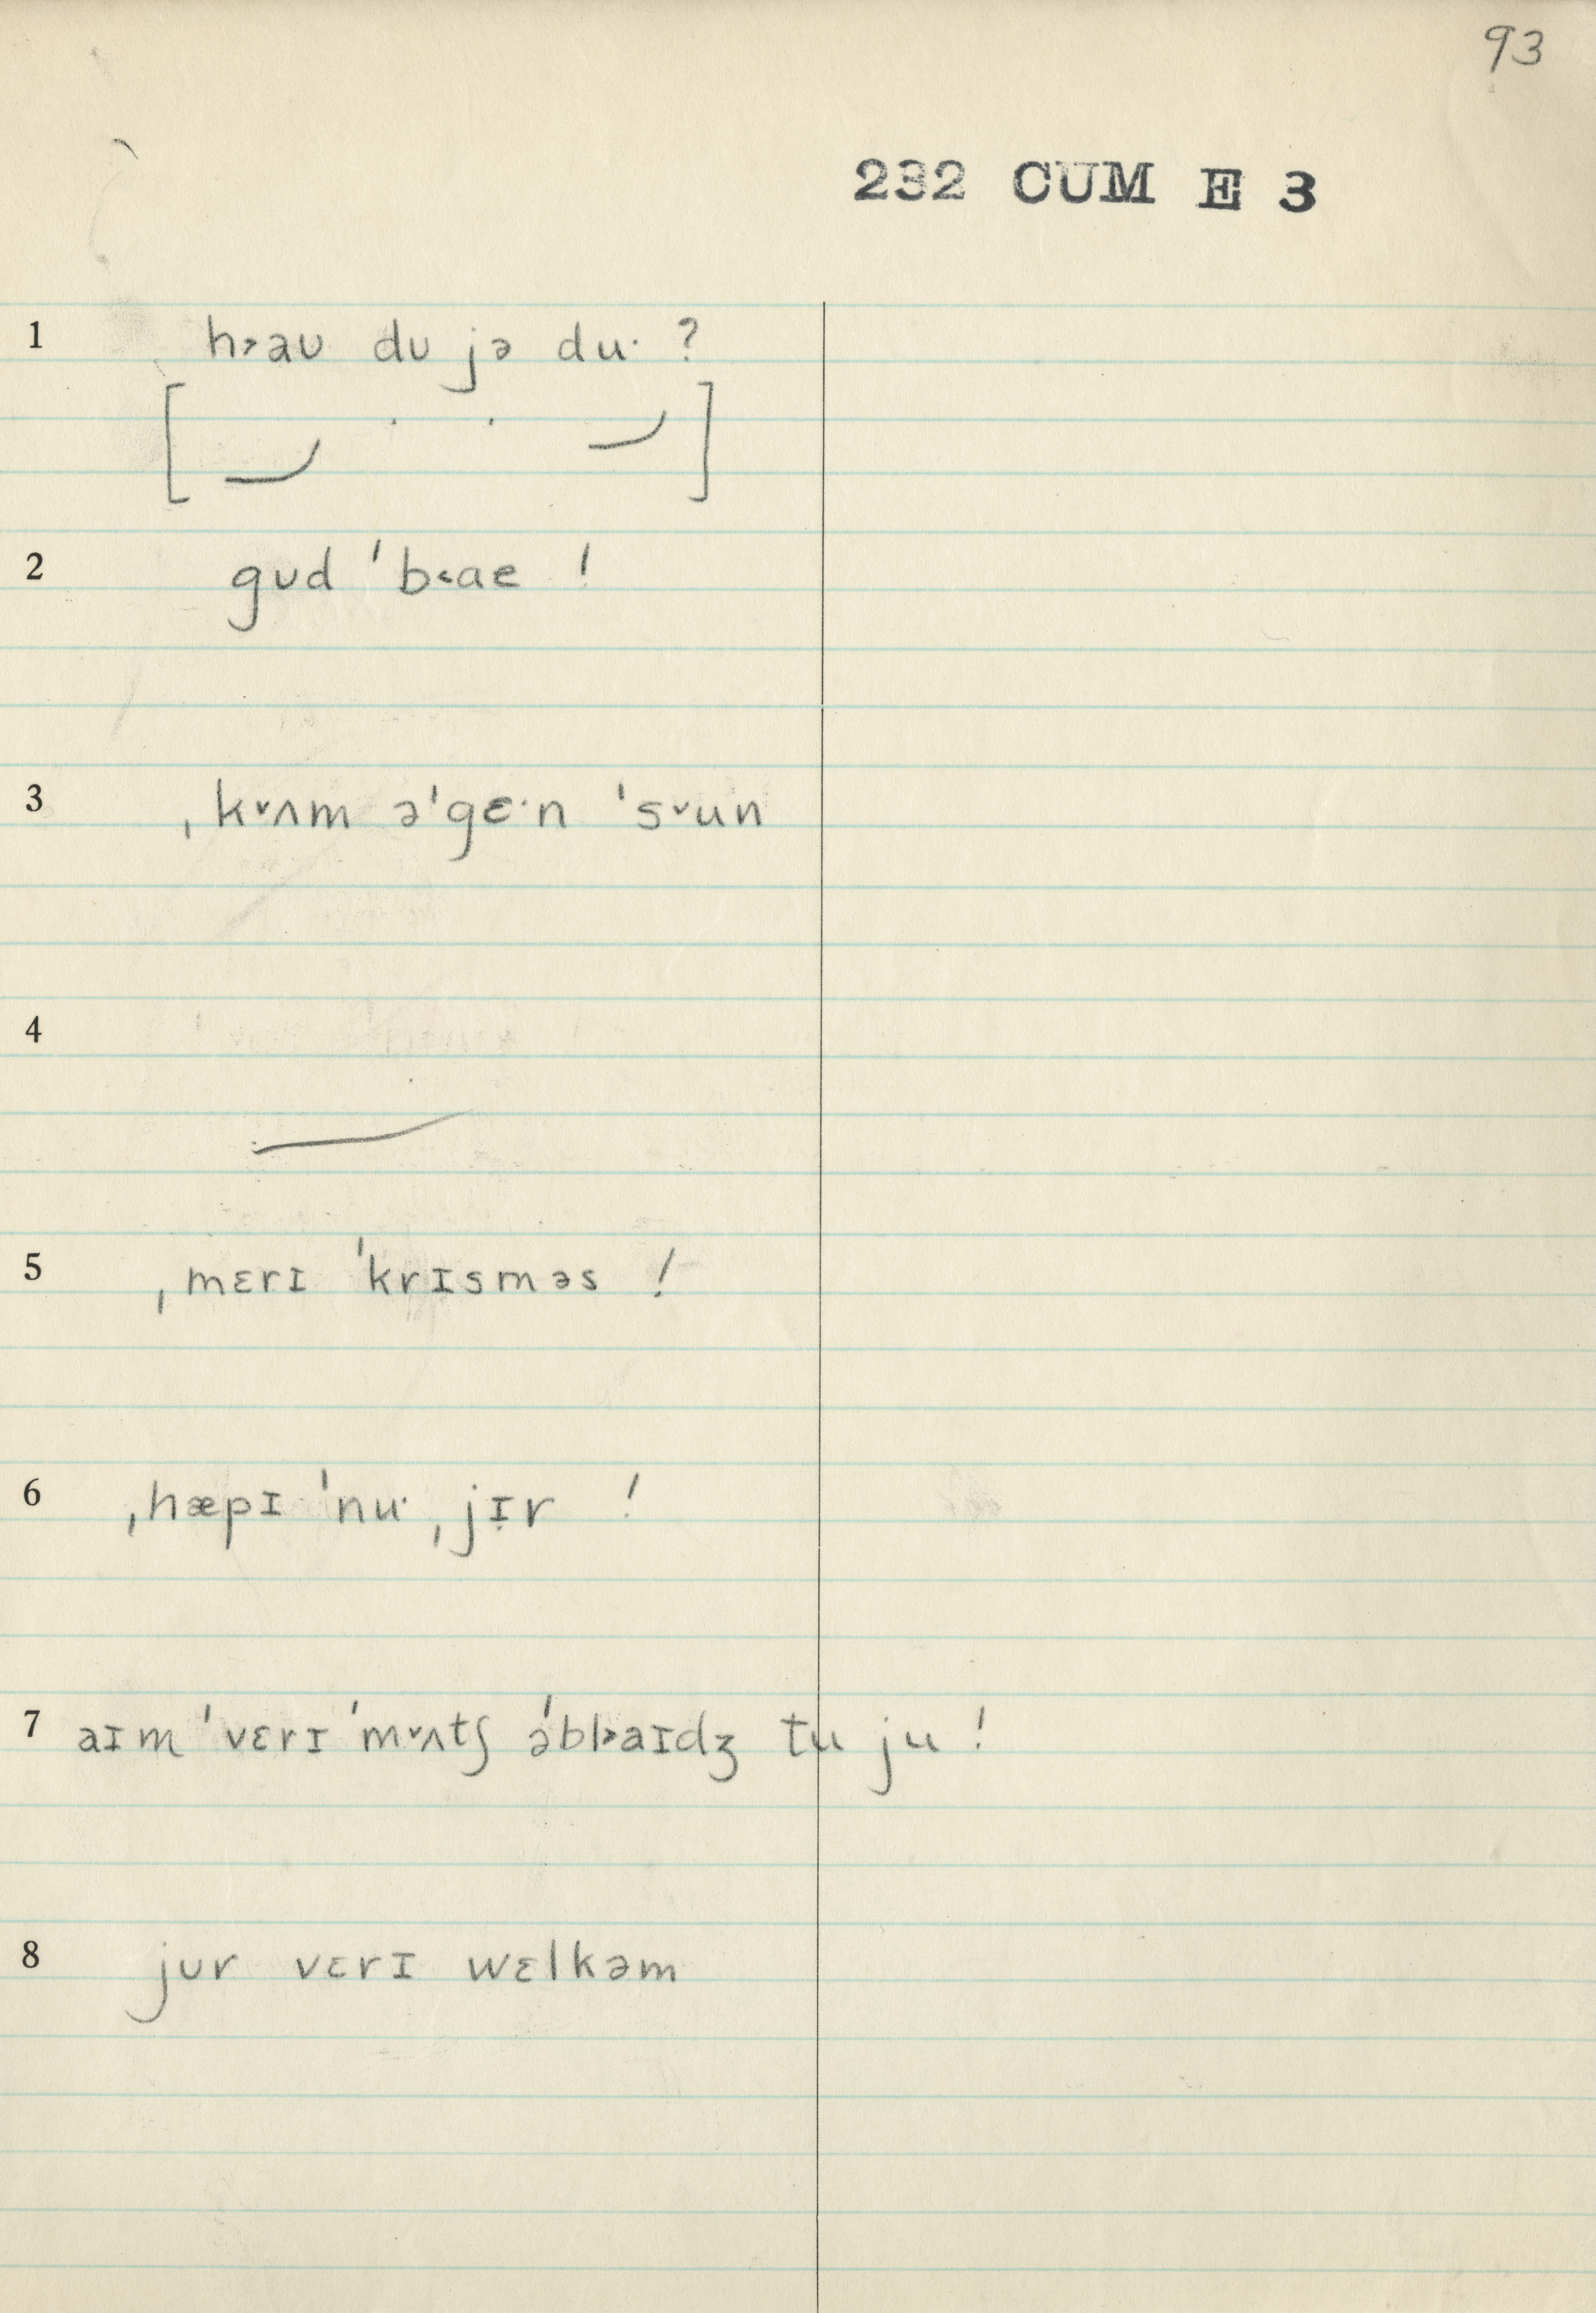 93
232 CUM E 3
1 h˃aʊ dʊ jə duˑ ?
2 gʊd ˈb˂ae !
3 ˌk˅ʌm əˈgɛˑn ˈs˅un
4
5 ˌmɛrɪ ˈkrɪsməs !
6 ˌhæpɪ ˈnuˑ ˌjɪ̣r !
7 aɪm ˈvɛrɪ ˈm˅ʌtʃ əˈbl˃aɪdʒ tu ju !
8 jʊr vɛrɪ wɛlkəm